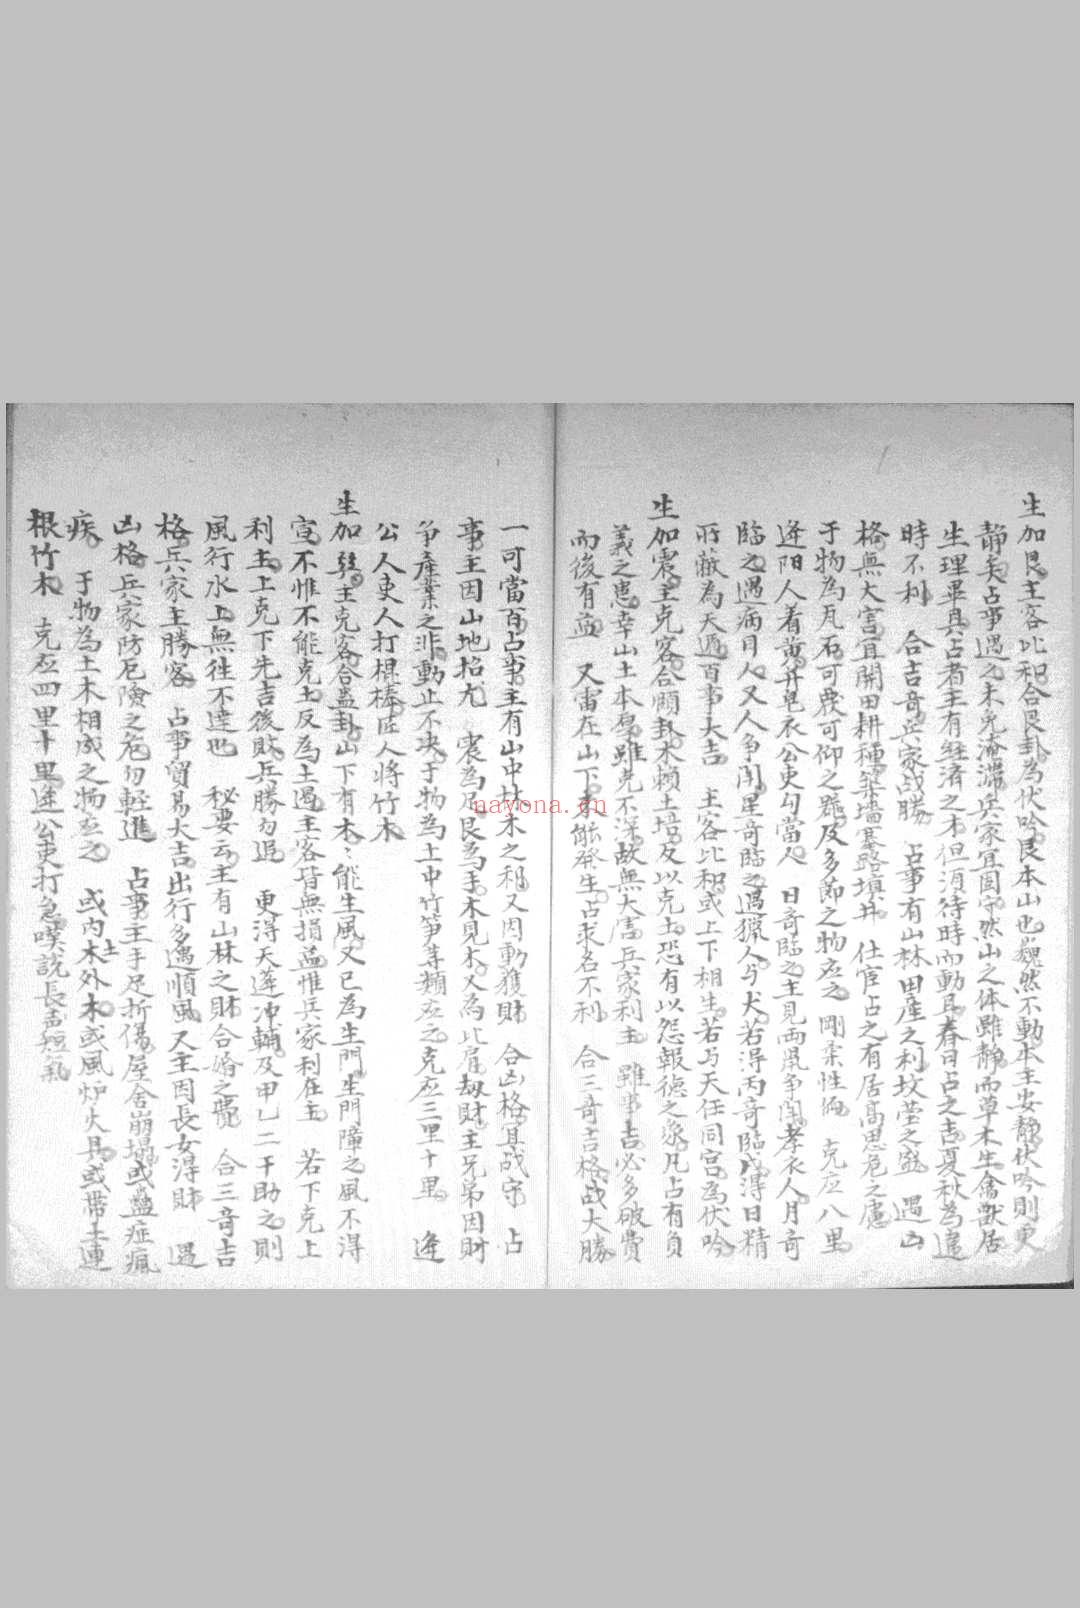 生加艮主客比和合艮卦為伏吟艮本山也巍然不動本主安静伏吟則更
静矣占事遇之未免淹滞兵家宜固守然山之体雖静而草木生禽獸居
生理畢具占者主有経済之才但湏待時而動且春日占之吉夏秋為違
時不利 合吉竒兵家战勝 占事有山林田産之利坟莹之盛 遇凶
格無大害宜開田耕種築墙塞路填井 仕宦占之有居高思危之慮
于物為瓦石可農可仰之 及多節之物应之 剛柔性 克应八里
逄阳人着黄并皂衣公吏勾當人 日竒臨之主見両鼡争闹孝衣人月竒
臨之遇病目人又人争闹星竒臨之遇猟人与犬若淂丙竒臨戊淂日精
所蔽為天遁百事大吉 主客比和或上下相生若与天任同宫為伏吟
生加震主克客合頤卦木頼土培反以克土恐有以怨報德之象凡占有負
義之患幸山土本厚雖克不深故無大害兵家利主 雖事吉必多破費
而後有益 又雷在山下未能發生占求名不利 合三竒吉格战大勝
一可當百占事主有山中材木之利又因動獲財 合凶格宜战守 占
事主因山地招尤 震為足艮為手木見木又為比肩刼財主兄弟因財
争産業之非動止不决于物為土中竹笋等類应之克应三里十里 逄
公人吏人打棍棒匠人将竹木
生加巽主克客合蠱卦山下有木木能生風又已為生門生門障之風不淂
宣不惟不能克土反為土遏主客皆無損益惟兵家利在主 若下克上
利主上克下先吉後敗兵勝勿追 更淂天蓬冲輔及甲乙二干助之則
風行水上無往不達也 秘要云主有山林之財合婚之 合三竒吉
格兵家主勝客 占事貿易大吉出行多遇順風又主因長女淂財 遇
凶格兵家防厄險之危勿輕進 占事主手足折傷屋舍崩塌或蠱症瘋
疾 于物為土木相成之物应之 或内木外土或風炉火具或帶土連
根竹木 克应四里十里逄公吏打急嘆説長盂短氣